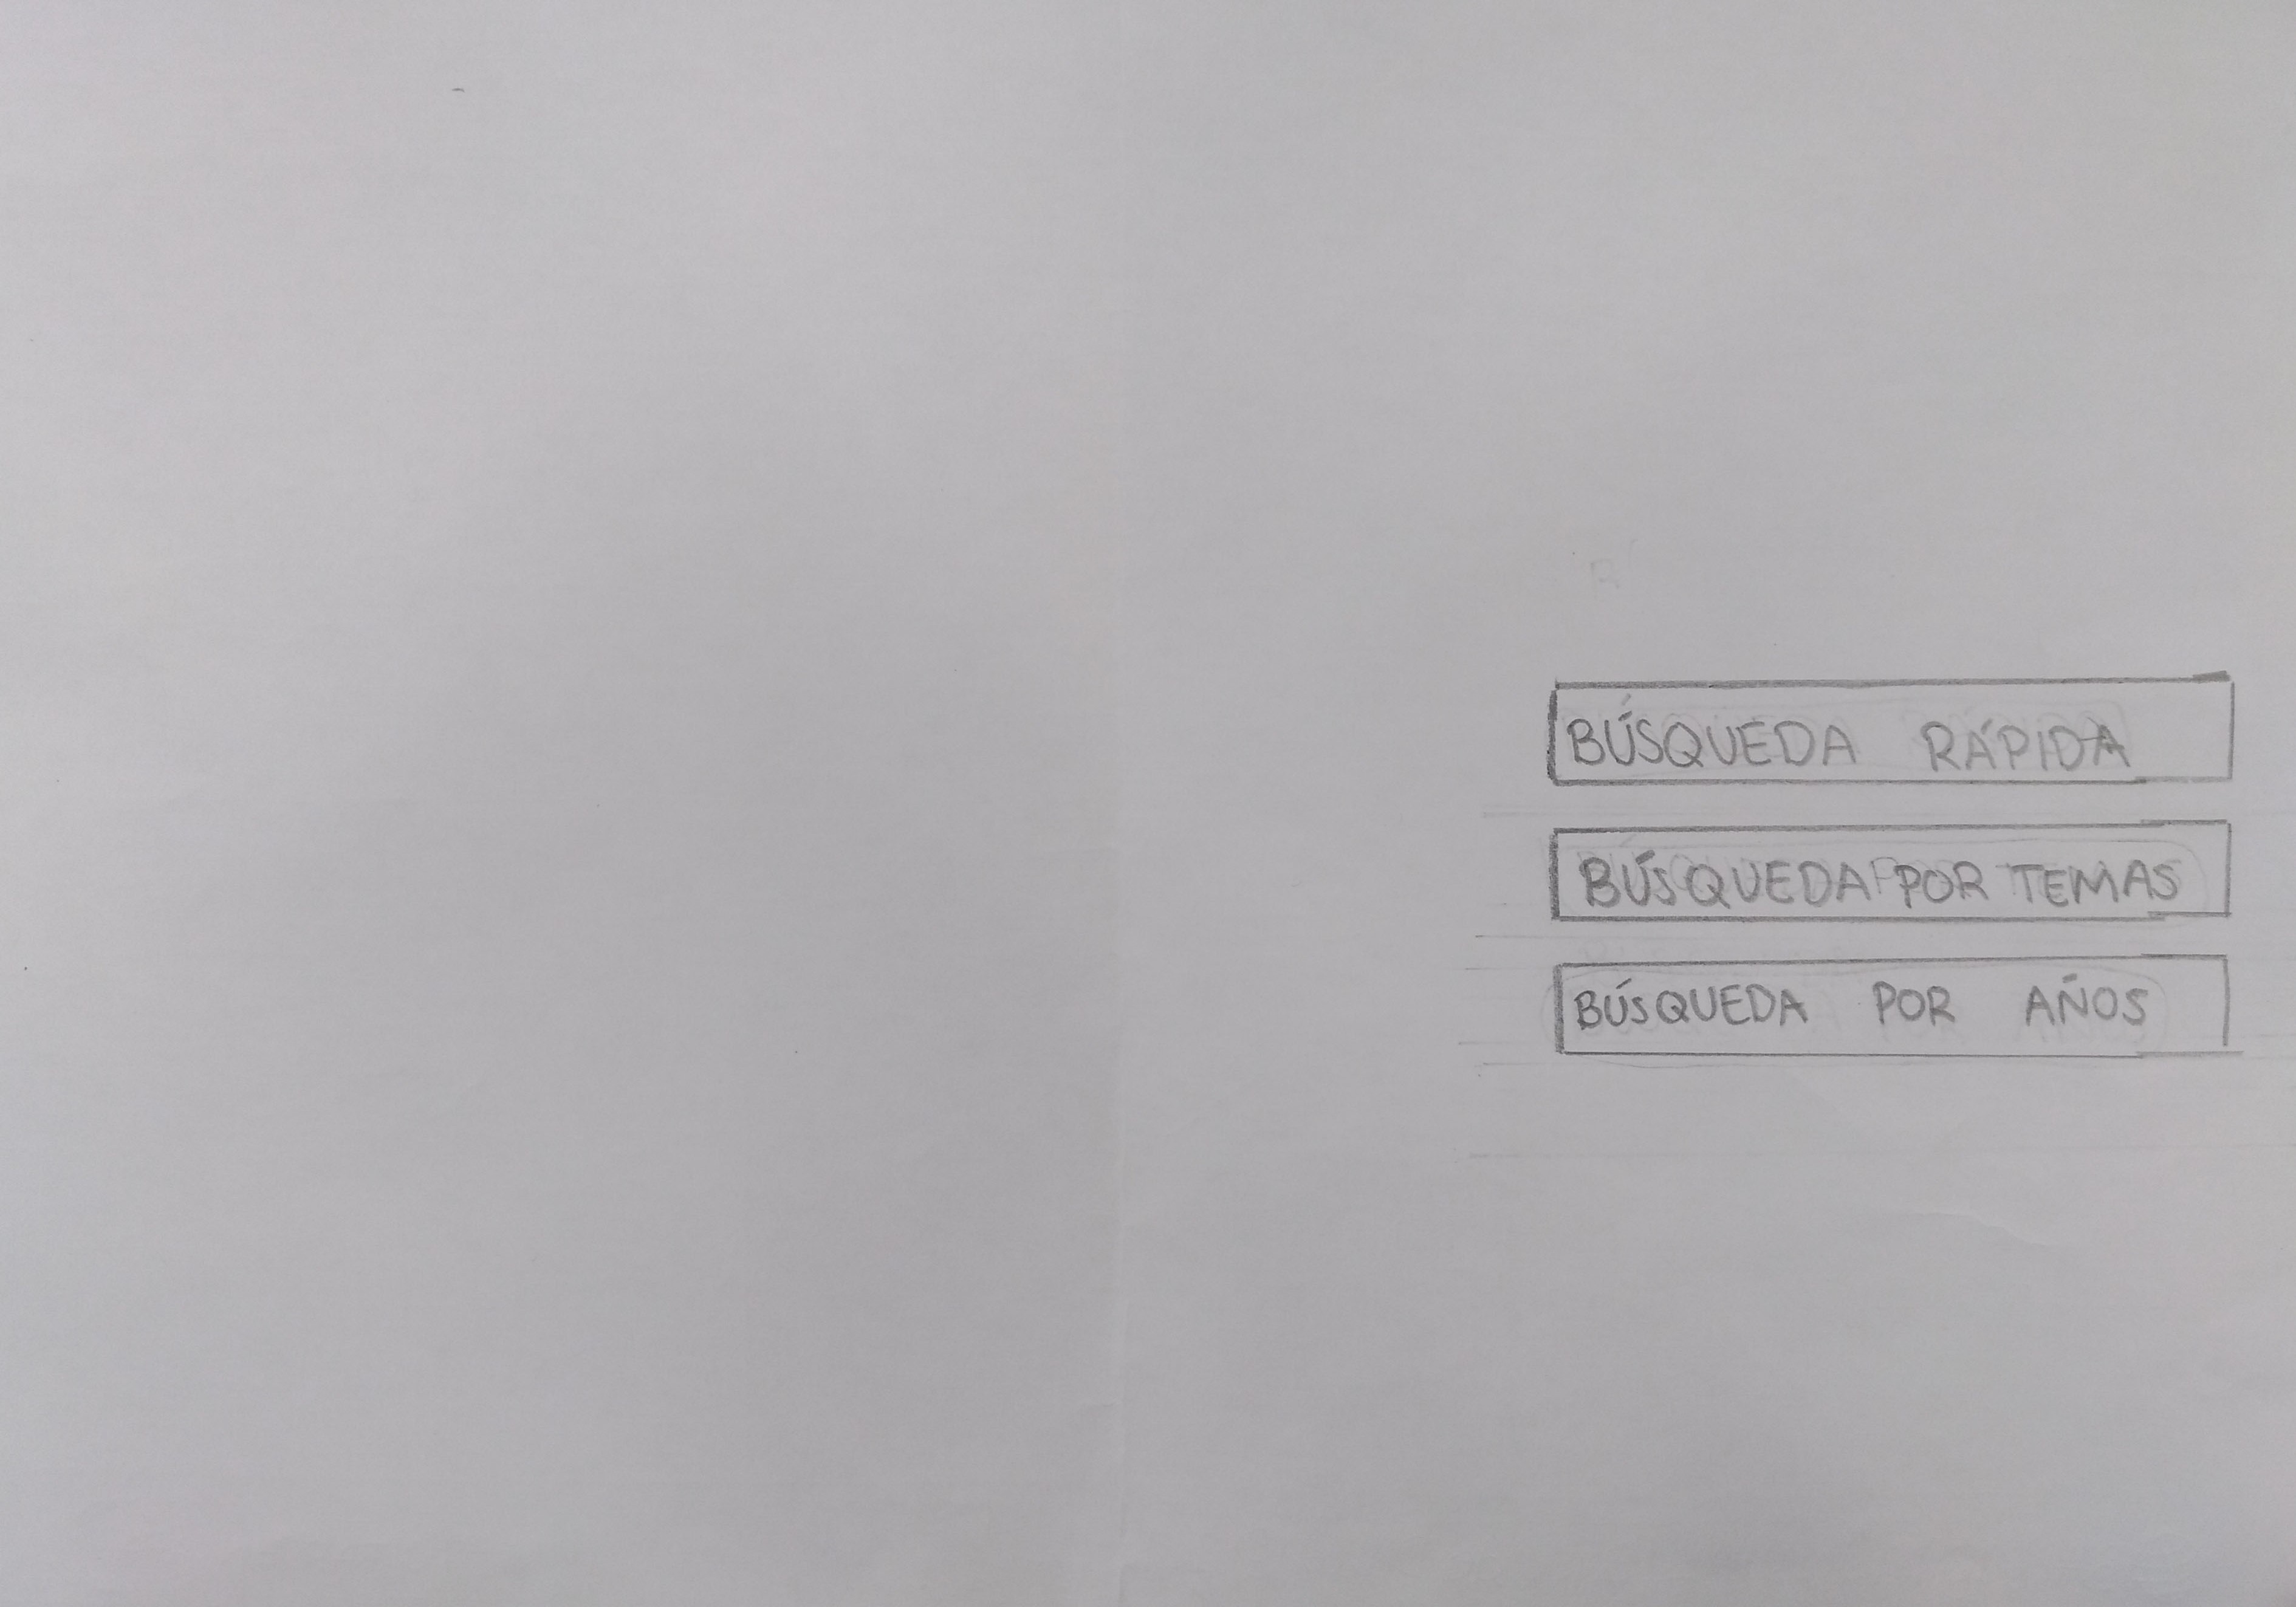 BÚSQUEDA RÁPIDA
BÚSQUEDA POR TEMAS
BÚSQUEDA POR AÑOS